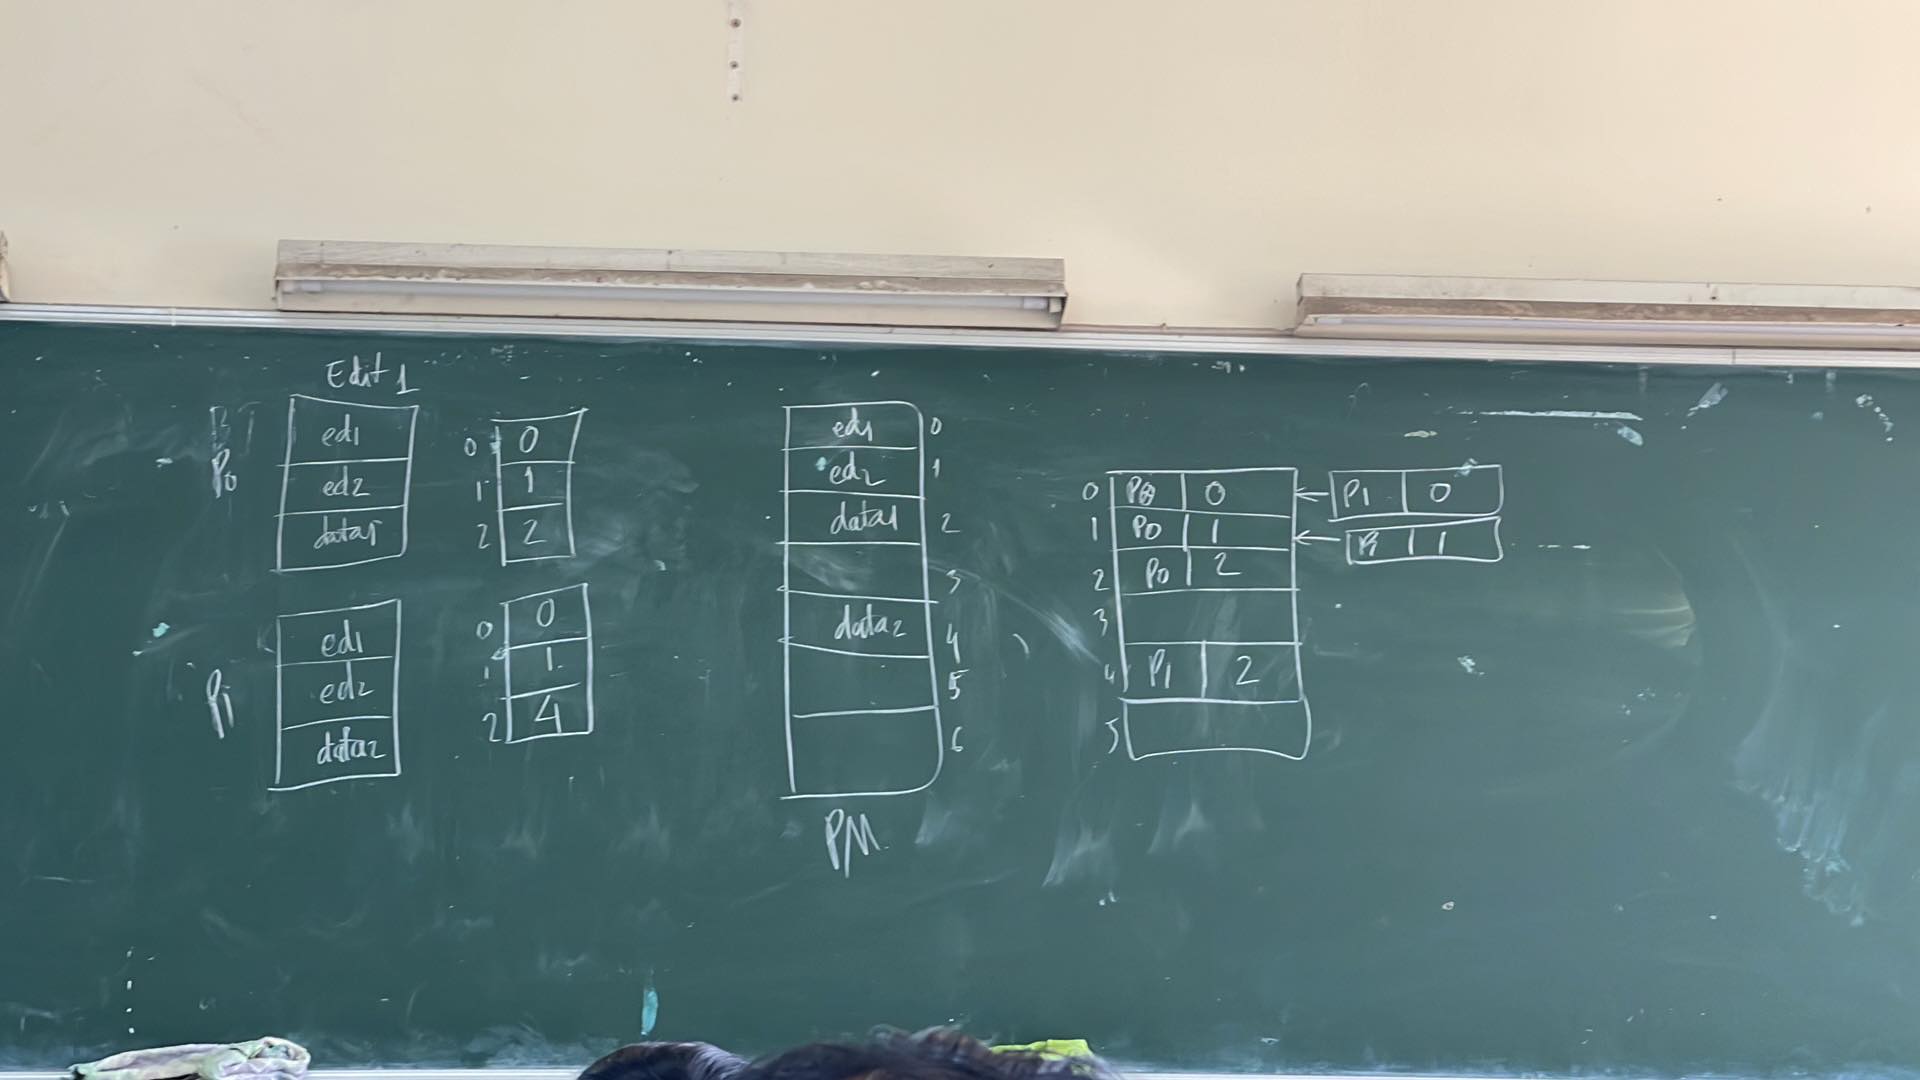 Edit 1
P0
ed1
ed2
data1
0 0
1 1
2 2
P1
ed1
ed2
data2
0 0
1 1
2 4
ed1 0
ed2 1
data1 2
3
data2 4
5
6
PM
0 P0 0
1 P0 1
2 P0 2
3
4 P1 2
5
P1 0
P1 1